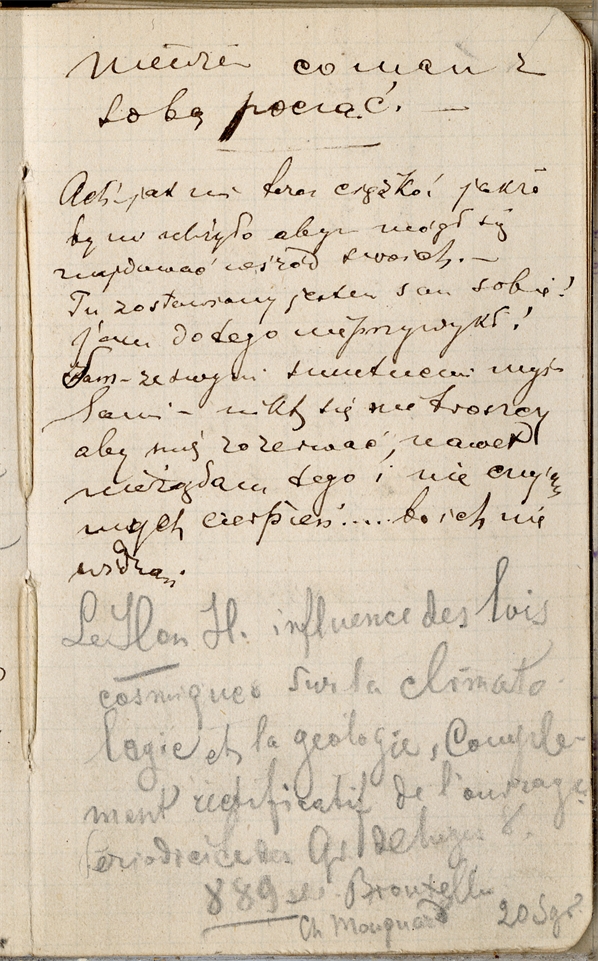 co mam z
sobą począć. —
Ach! jak mi teraz ciężko! jakże
by się abym mógł się
znajdować wśród swoich. —
Tu zostawiony jestem sam sobie!
jam do tego nieprzywykł!
Sam – ze swymi smutnemi myś-
lami – nikt się nie troszczy
aby mię rozerwać, nawet
nieżądam tego i nie
mych cierpień.... bo ich nie
widzą.
Le Hon H. influence des lois
cosmiques sur la climato-
logie et la géologie, Comple-
ment rectificatif de l'ouvrage
Periodicité des Gds Deluges 8.
Bruxelles
Ch Mouquard 20 Sgr.